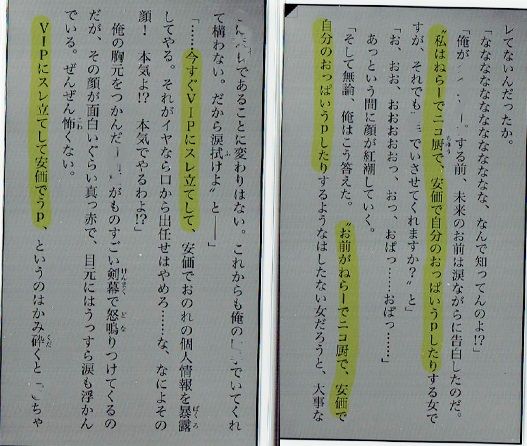 レてないんだったか。
「なななななななななななな、なんで知ってんのよ!?」
「俺が　　する前、未来のお前は涙ながらに告白したのだ。
〝私はねらーでニコ厨で、安価で自分のおっぱいうpしたりする女で
すが、それでも　　でいさせてくれますか？〟と」
「お、おお、おおおおおっ、おっ、おぱっ……おぱっ……」
あっという間に顔が紅潮していく。
「そして無論、俺はこう答えた。〝お前がねらーでニコ厨で、安価で
自分のおっぱいうpしたりするようなはしたない女だろうと、大事な
であることに変わりはない。これからも俺の　　でいてくれ
て構わない。だから涙拭けよ〟と――」
「……今すぐVIPにスレ立てして、安価でおのれの個人情報を暴露
してやる。それがイヤなら口から出任せはやめろ……な、なによその
顔！　本気よ!?　本気でやるわよ!?」
俺の胸元をつかんだ　　がものすごい剣幕で怒鳴りつけてくるの
だが、その顔が面白いぐらい真っ赤で、目元にはうっすら涙も浮かん
でいる。ぜんぜん怖くない。
VIPにスレ立てして安価でうp、というのはかみ砕くと　　ちゃ